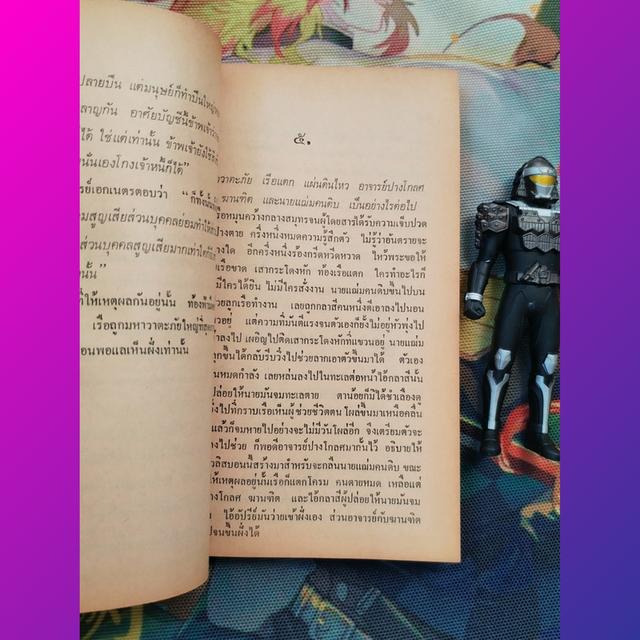 ปลายปืน แต่มนุษย์ก็ทำปืนใหญ่
ลาญกัน อาศัยบัญชีนี้ข้าพเจ้าว่า
ได้ ใช่แต่เท่านั้น ข้าพเจ้ายังใช้
นั่นเองโกงเจ้าหนี้ก็ได้”
รย์เอกเนตรตอบว่า “ก็ทั้งนั้น
มสูญเสียส่วนบุคคลย่อมทำให้
ส่วนบุคคลสูญเสียมากเท่าใด
นั้น”
ที่ให้เหตุผลกันอยู่นั้น ท้อง
เรือถูกมหาวาตะภัยใหญ่ที่สุด
อนพอแลเห็นฝั่งเท่านั้น
๕.
วาตะภัย เรือแตก แผ่นดินไหว อาจารย์ปางโกลศ
ฆานฑิต และนายแฌ่มคนดิบ เป็นอย่างไรต่อไป
รือหมุนคว้างกลางสมุทรจนผู้โดยสารได้รับความเจ็บปวด
ปางตาย ครึ่งหนึ่งหมดความรู้สึกตัว ไม่รู้ว่าอันตรายจะ
างใด อีกครึ่งหนึ่งร้องกรีดหวีดหวาด ไหว้พระขอให้
เรือขาด เสากระโดงหัก ท้องเรือแตก ใครทำอะไรก็
มีใครได้ยิน ไม่มีใครสั่งงาน นายแฌ่มคนดิบขึ้นไปบน
วยลูกเรือทำงาน เลยถูกกลาสีคนหนึ่งตีเอาลงไปนอน
าวอยู่ แต่ความที่มันตีแรงจนตัวเองก็ยั้งไม่อยู่หัวพุ่งไป
าลงไป เผอิญไปติดเสากระโดงหักที่แขวนอยู่ นายแฌ่ม
ุกขึ้นได้กลับรีบวิ่งไปช่วยลากเอาตัวขึ้นมาได้ ตัวเอง
นหมดกำลัง เลยหล่นลงไปในทะเลต่อหน้าไอ้กลาสีนั้น
ปล่อยให้นายมันจมทะเลตาย ตาน้อยก็มิได้ชำเลืองดู
ิ่งไปที่กราบเรือเห็นผู้ช่วยชีวิตตน โผล่ขึ้นมาเหนือคลื่น
แล้วก็จมหายไปอย่างจะไม่มีวันโผล่อีก จึงเตรียมตัวจะ
งไปช่วย ก็พอดีอาจารย์ปางโกลศมากั้นไว้ อธิบายให้
วลิสบอนนี้สร้างมาสำหรับจะกลืนนายแฌ่มคนดิบ ขณะ
ห้เหตุผลอยู่นั้นเรือก็แตกโครม คนตายหมด เหลือแต่
างโกลศ ฆานฑิต และไอ้กลาสีผู้ปล่อยให้นายมันจม
ไอ้อัปรีย์มันว่ายเข้าฝั่งเอง ส่วนอาจารย์กับฆานฑิต
ปจนขึ้นฝั่งได้